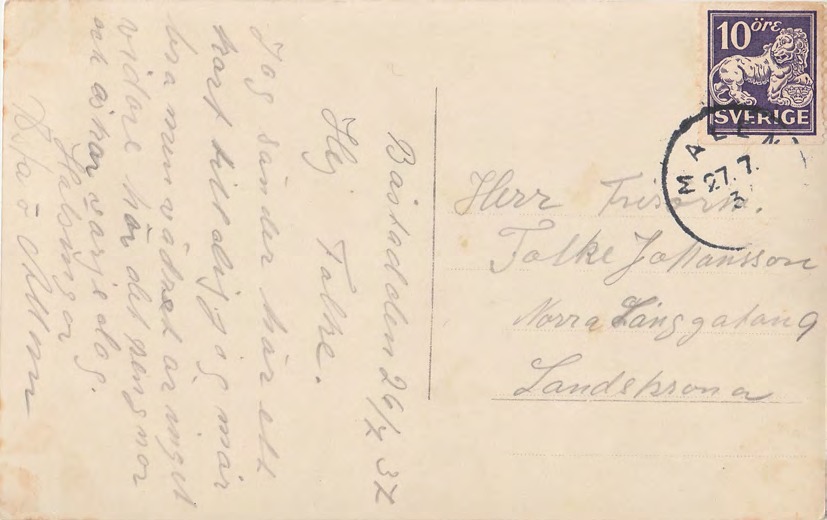 10 öre
SVERIGE
MALEN
27.7.
3
Herr Frisörn.
Folke Johansson
Norra Långgatan 9
Landskrona
Båstad den 26/7 37
Hej Folke.
Jag sänder här ett
kort till dig jag mår
bra men vädret är inget
vidare här det regnar
och åskar varje dag.
Hälsningar